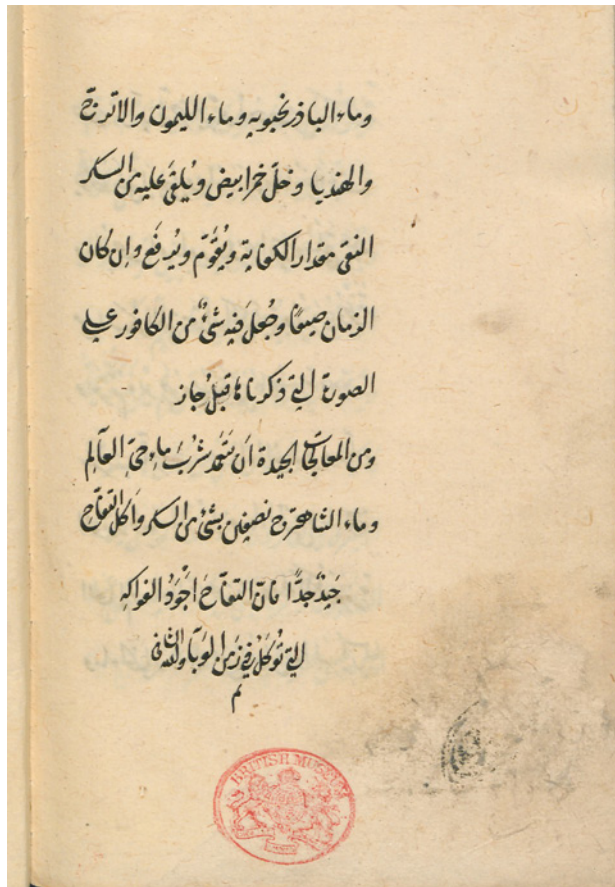 وماء الباذرنجبويه وماء الليمون والاترج
والهندبا وخلّ خمر ابيض ويُلقى عليه من السكر
النقى مقدار الكفاية ويُقوّم ويُرفع وإن كان
الزمان صيفًا وجُعل فيه شئٌ من الكافور على
الصورة التى ذكرناها قبلُ جاز
ومن المعالجات الجيدة أن شُرب ماء حىّ العالم
وماء الشاهترج نصفين بشئ من السكر وأكل التفاح
جَيّد جدًّا فانّ التفاحَ أجْوَدُ الفواكه
التى تُوكل فى زمن الوبآء والله الشافى
م
BRITISH MUSEUM